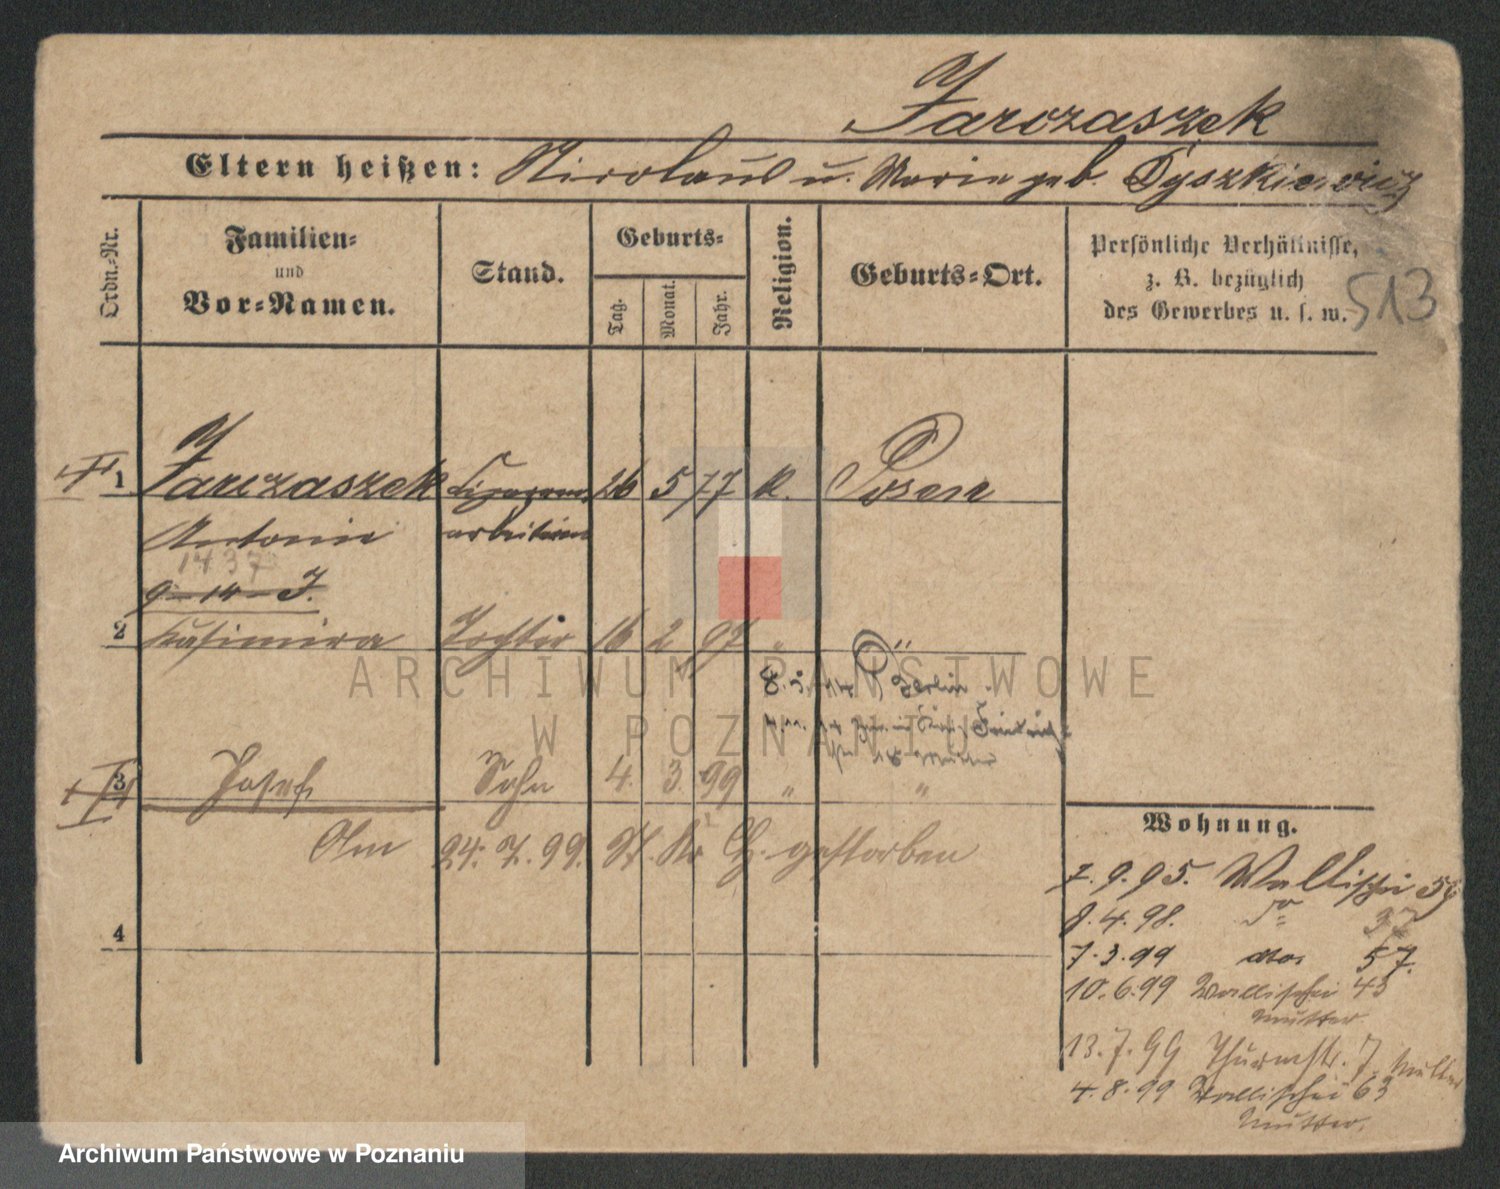 Jarczaszek
Eltern heißen: Nicolaus u. Marie geb. Dyszkiewicz
Ordn.-Nr.
Familien-
und
Vor-Namen.
Stand.
Geburts-
Tag.
Monat.
Jahr.
Religion.
Geburts-Ort.
Persönliche Verhältnisse,
z. B. bezüglich
des Gewerbes u. s. w.
513
1 Jarczaszek 26 5 77 k. Posen
Antonie arbeiterin
1437
9-14-J.
2 Kasimira Tochter 16 2 97 " "
Berlin
3 Josef Sohn 4. 3. 99 " "
24. 7. 99. gestorben
4
Wohnung.
7.9.95. Wallischei 59
8.4.98. do 37
7.3.99 dto. 57.
10.6.99 Wallischei 43
Mutter
13.7.99 Thurmstr. 7 Mutter
4.8.99 Wallischei 63
Mutter.
ARCHIWUM PAŃSTWOWE
W POZNANIU
Archiwum Państwowe w Poznaniu